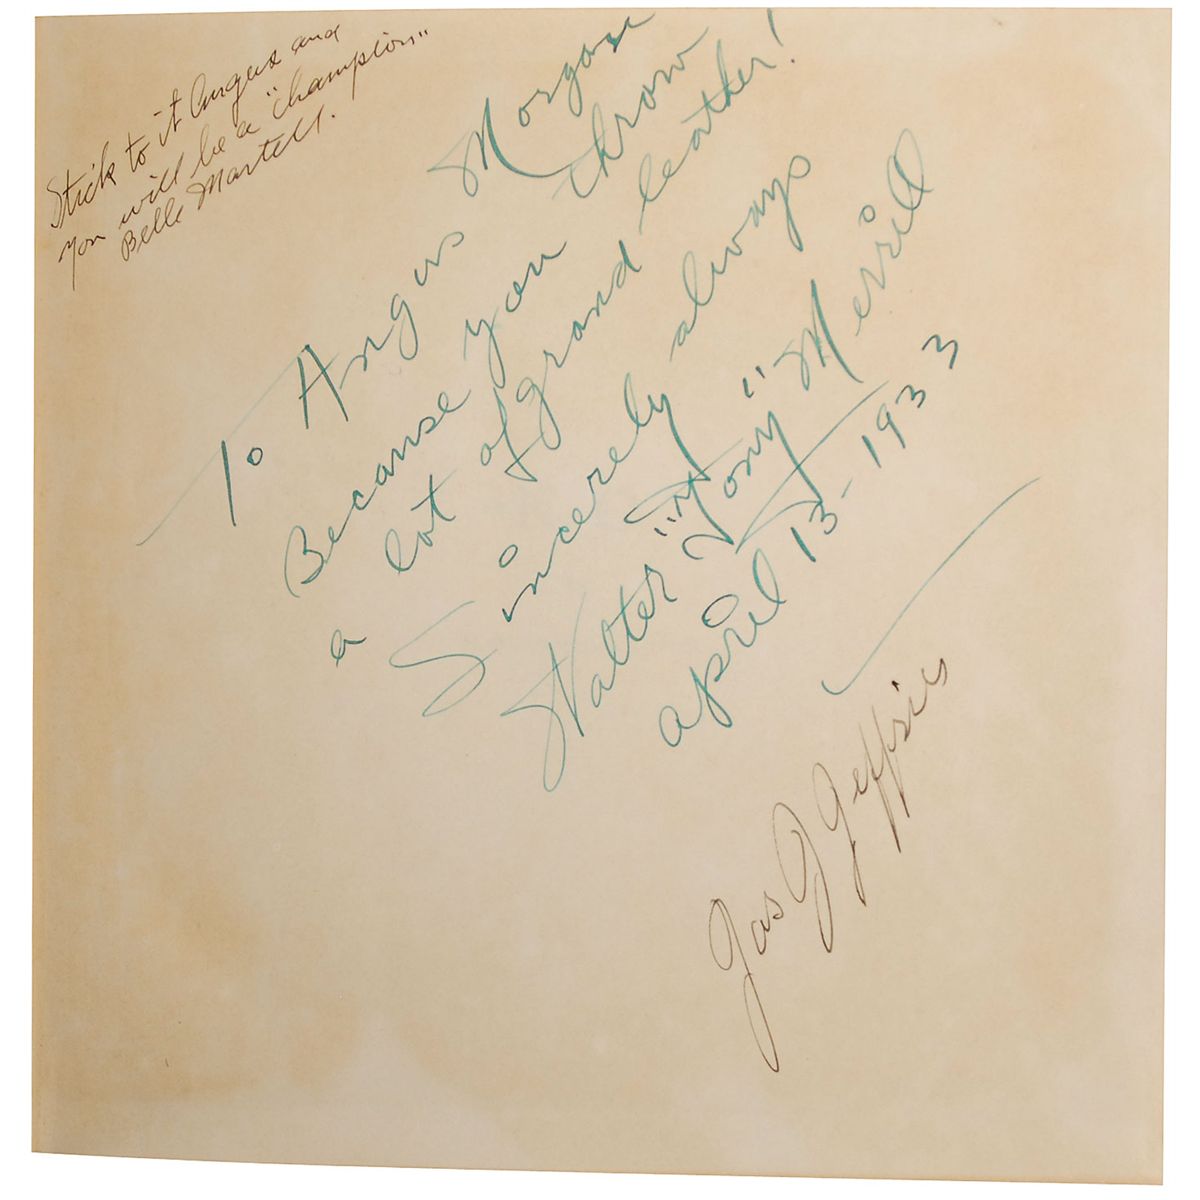 Stick to it Angus and
you will be a "champion"
Belle Martell.
To Angus Morgan
Because you throw
a lot of grand leather!
Sincerely always
Walter "Tony" Merrill
April 13-1933
Jas J Jeffries